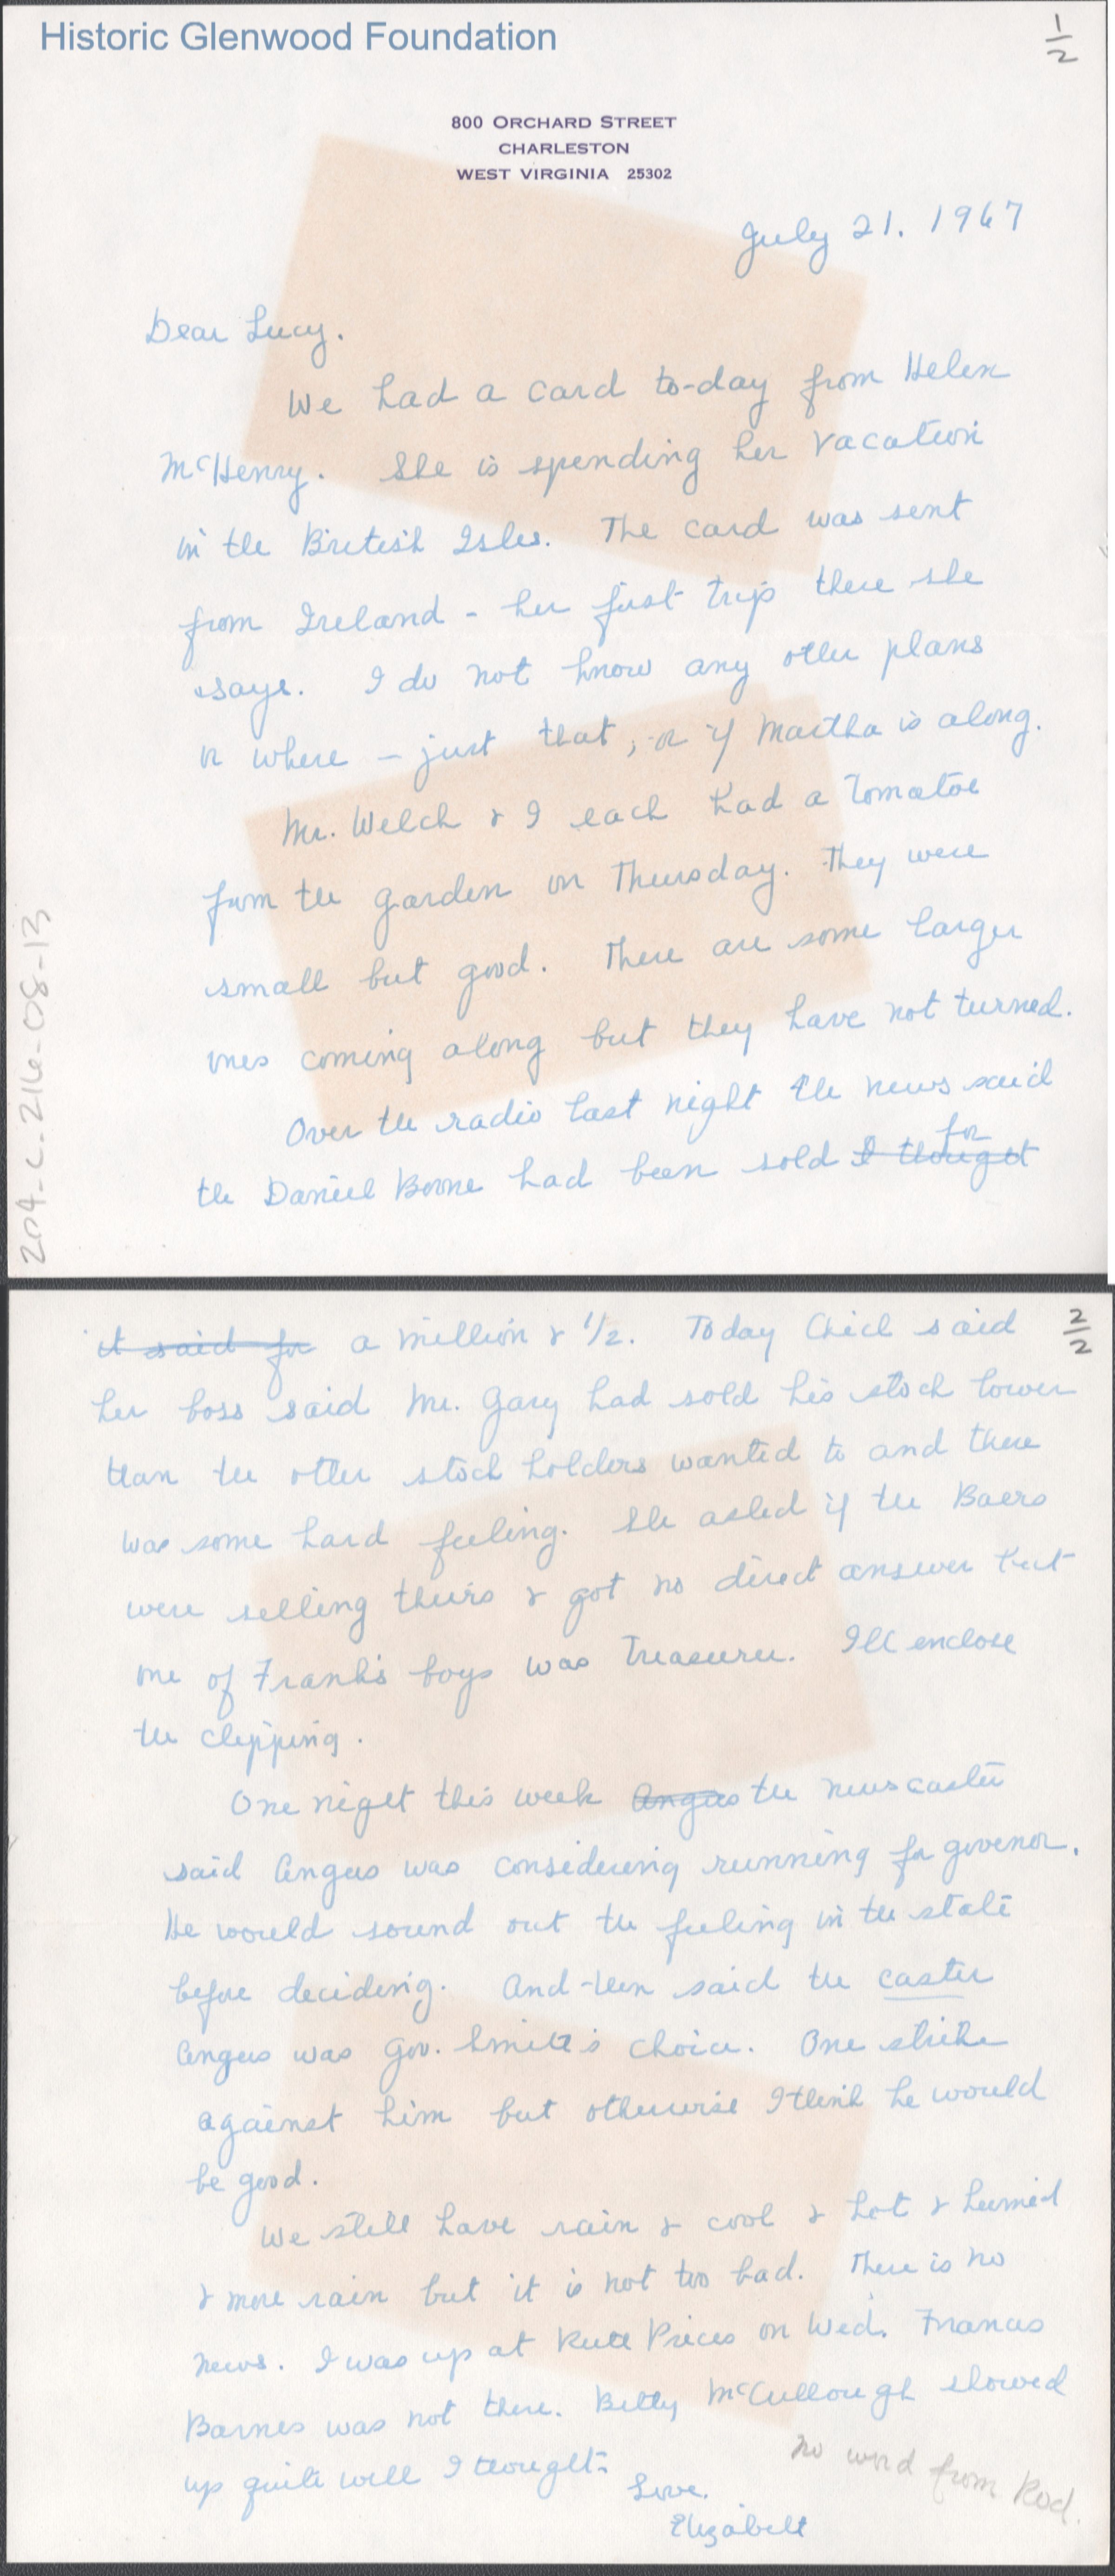 Historic Glenwood Foundation
1/2
800 ORCHARD STREET
CHARLESTON
WEST VIRGINIA 25302
July 21. 1967
Dear Lucy.
We had a card to-day from Helen
McHenry. She is spending her vacation
in the British Isles. The card was sent
from Ireland - her first trip there she
says. I do not know any other plans
or where - just that, or if Martha is along.
Mr. Welch & I each had a Tomatoe
from the garden on Thursday. They were
small but good. There are some larger
ones coming along but they have not turned.
Over the radio last night the news said
for
the Daniel Boone had been sold I thought
204-c-216-08-13
it said for a million & 1/2. Today Chicl said
2/2
her boss said Mr. Gary had sold his stock lower
than the other stock holders wanted to and there
was some hard feeling. She asked if the Baers
were selling theirs & got no direct answer but
one of Frank's boys was Treasurer. I'll enclose
the clipping.
One night this week Angus the newscaster
said Angus was considering running for govenor.
He would sound out the feeling in the state
before deciding. And then said the caster
Angus was Gov. Smith's choice. One strike
against him but otherwise I think he would
be good.
We still have rain & cool & hot & humid
& more rain but it is not too bad. There is no
news. I was up at Ruth Prices on Wed. Frances
Barnes was not there. Betty McCullough showed
up quite well I thought.
no word from Rod.
Love.
Elizabeth